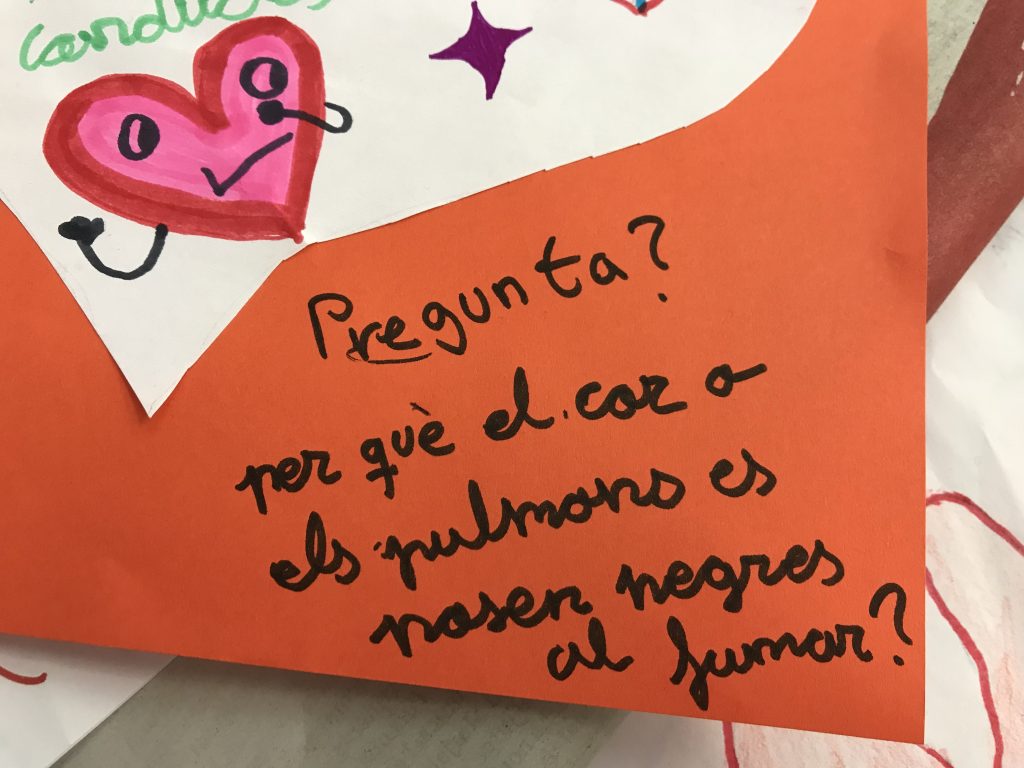 Pregunta?
per què el cor o
els pulmons es
posen negres
al fumar?